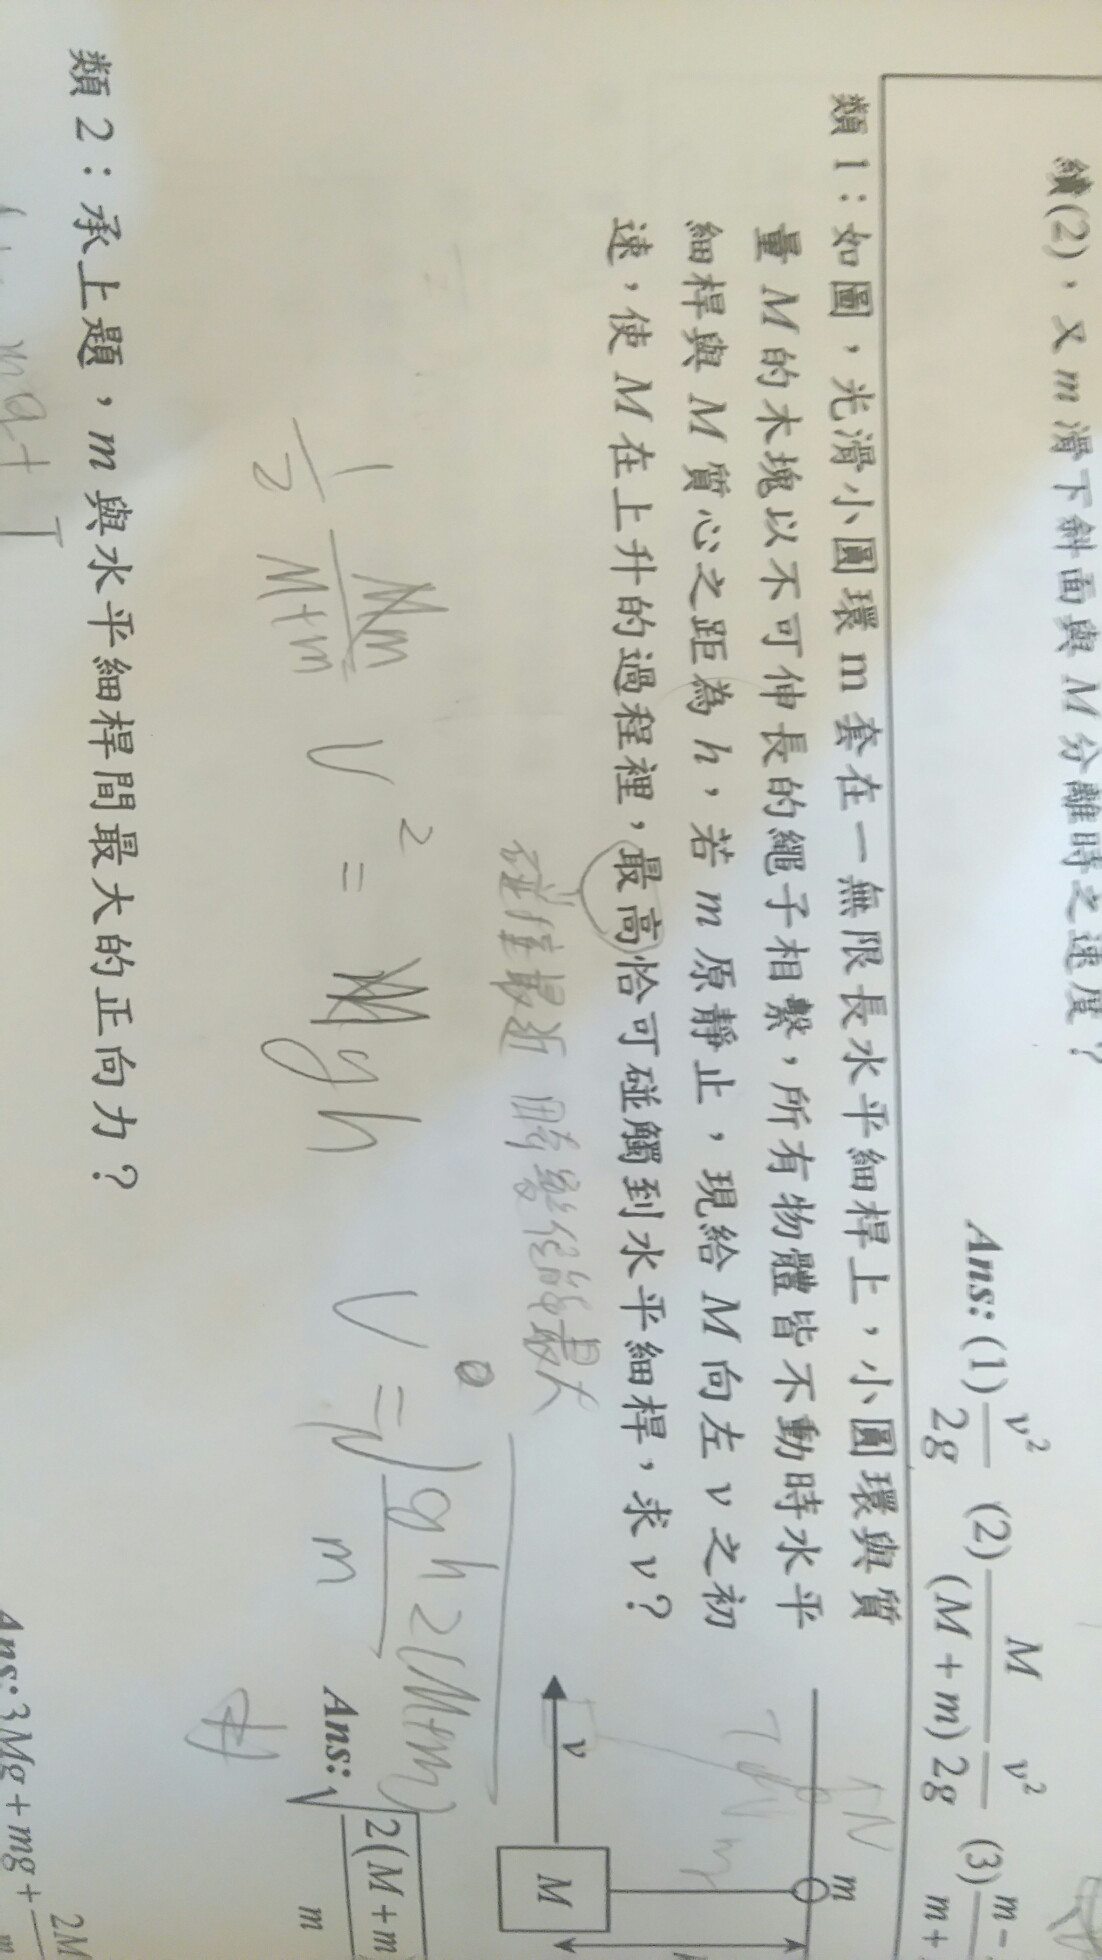 續(2),又 m 滑下斜面與 M 分離時之速度?
Ans: (1) v²/2g (2) M/(M + m) v²/2g (3) m -/m +
類 1:如圖,光滑小圓環 m 套在一無限長水平細桿上,小圓環與質
量 M 的木塊以不可伸長的繩子相繫,所有物體皆不動時水平
細桿與 M 質心之距為 h,若 m 原靜止,現給 M 向左 v 之初
速,使 M 在上升的過程裡,最高恰可碰觸到水平細桿,求 v?
m
N
M
v
碰撞最近 時 變 能最大
1/2 Mm/M+m v² = Mgh
v = √gh2(M+m)/m
Ans: √2(M + m)/m
類 2:承上題,m 與水平細桿間最大的正向力?
mg + T
Ans: 3Mg + mg + 2M/m